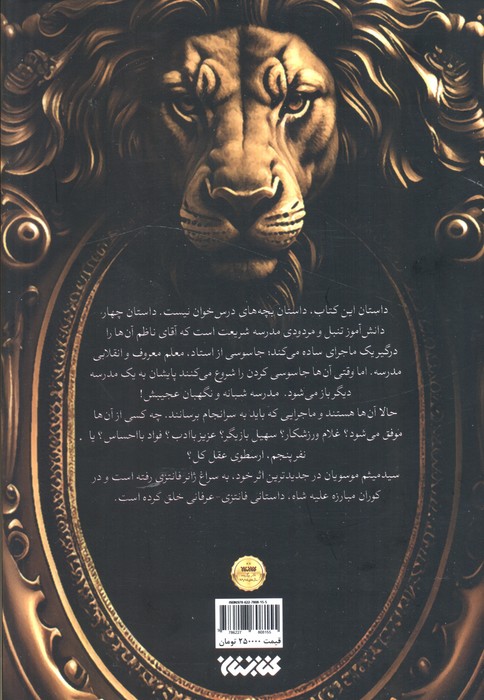 داستان این کتاب، داستان بچه‌های درس‌خوان نیست. داستان چهار
دانش‌آموز تنبل و مردودی مدرسه شریعت است که آقای ناظم آن‌ها را
درگیر یک ماجرای ساده می‌کند؛ جاسوسی از استاد، معلم معروف و انقلابی
مدرسه. اما وقتی آن‌ها جاسوسی کردن را شروع می‌کنند پایشان به یک مدرسه
دیگر باز می‌شود. مدرسه شبانه و نگهبان عجیبش!
حالا آن‌ها هستند و ماجرایی که باید به سرانجام برسانند. چه کسی از آن‌ها
موفق می‌شود؟ غلام ورزشکار؟ سهیل بازیگر؟ عزیز باادب؟ فواد بااحساس؟ یا
نفر پنجم، ارسطوی عقل کل؟
سیدمیثم موسویان در جدیدترین اثر خود، به سراغ ژانر فانتزی رفته است و در
کوران مبارزه علیه شاه، داستانی فانتزی-عرفانی خلق کرده است.
قیمت ۲۵۰۰۰۰ تومان